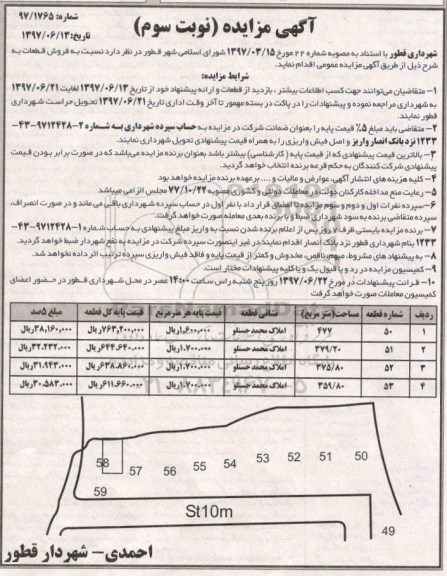 آگهی مزایده (نوبت سوم)
شماره: ۹۷/۱۷۶۵
تاریخ: ۱۳۹۷/۰۶/۱۳
شهرداری قطور با استناد به مصوبه شماره ۲۲ مورخ ۱۳۹۷/۰۳/۱۵ شورای اسلامی شهر قطور در نظر دارد نسبت به فروش قطعات به
شرح ذیل از طریق آگهی مزایده عمومی اقدام نماید.
شرایط مزایده:
۱- متقاضیان می‌توانند جهت کسب اطلاعات بیشتر ، بازدید از قطعات و ارائه پیشنهاد خود از تاریخ ۱۳۹۷/۰۶/۱۳ لغایت ۱۳۹۷/۰۶/۲۱
به شهرداری مراجعه نموده و پیشنهادات را در پاکت در بسته مهمور تا آخر وقت اداری تاریخ ۱۳۹۷/۰۶/۲۱ تحویل حراست شهرداری
قطور نمایند.
۲- متقاضی باید مبلغ ۵٪ قیمت پایه را بعنوان ضمانت شرکت در مزایده به حساب سپرده شهرداری به شماره ۲-۹۷۱۲۴۲۸-۴۳-
۱۲۳۳ نزد بانک انصار واریز و اصل فیش واریزی را به همراه قیمت پیشنهادی تحویل شهرداری نمایند.
۳- بالاترین قیمت پیشنهادی که از قیمت پایه (کارشناسی) بیشتر باشد بعنوان برنده مزایده می‌باشد که در صورت برابر بودن قیمت
پیشنهادی شرکت کنندگان به حکم قرعه برنده انتخاب خواهد گردید.
۴- کلیه هزینه های انتشار آگهی، عوارض و مالیات و .... برعهده برنده مزایده خواهد بود
۵- رعایت منع مداخله کارکنان دولت در معاملات دولتی و کشوری مصوبه ۷۷/۱۰/۲۲ مجلس الزامی میباشد
۶- سپرده نفرات اول و دوم و سوم مزایده تا امضای قرار داد با نفر اول در حساب سپرده شهرداری باقی می ماند و در صورت انصراف،
سپرده متقاضی برنده به سود شهرداری ضبط و با برنده بعدی معامله صورت خواهد گرفت.
۷- برنده مزایده بایستی ظرف ۷ روز پس از اعلام برنده شدن نسبت به واریز مبلغ پیشنهادی به حساب شماره ۱-۹۷۱۲۴۲۸-۴۳-
۱۲۳۳ بنام شهرداری قطور نزد بانک انصار اقدام نمایند در غیر اینصورت سپرده شرکت در مزایده به نفع شهردار ضبط خواهد گردید.
۸- به پیشنهاد های مشروط، مبهم، ناقص، مخدوش و کمتر از قیمت پایه و فاقد فیش واریزی سپرده ترتیب اثر داده نخواهد شد.
۹- کمیسیون مزایده در رد و یا قبول یک و یا کلیه پیشنهادات مختار است.
۱۰- قرائت پیشنهادات در مورخ ۱۳۹۷/۰۶/۲۲ روز پنج شنبه راس ساعت ۱۴:۰۰ عصر در محل شهرداری قطور در حضور اعضای
کمیسیون معاملات صورت خواهد گرفت
ردیف شماره قطعه مساحت (متر مربع) نشانی قطعه قیمت پایه هر متر مربع قیمت پایه کل قطعه مبلغ ۵درصد
۱ ۵۰ ۴۷۷ املاک محمد حسنلو ۱.۶۰۰.۰۰۰ریال ۷۶۳.۲۰۰.۰۰۰ریال ۳۸.۱۶۰.۰۰۰ریال
۲ ۵۱ ۳۷۹/۲۰ املاک محمد حسنلو ۱.۷۰۰.۰۰۰ریال ۶۴۴.۶۴۰.۰۰۰ریال ۳۲.۲۳۲.۰۰۰ریال
۳ ۵۲ ۳۷۵/۸۰ املاک محمد حسنلو ۱.۷۰۰.۰۰۰ریال ۶۳۸.۸۶۰.۰۰۰ریال ۳۱.۹۴۳.۰۰۰ریال
۴ ۵۳ ۳۵۹/۸۰ املاک محمد حسنلو ۱.۷۰۰.۰۰۰ریال ۶۱۱.۶۶۰.۰۰۰ریال ۳۰.۵۸۳.۰۰۰ریال
58 57 56 55 54 53 52 51 50
59
St10m
49
احمدی- شهردار قطور